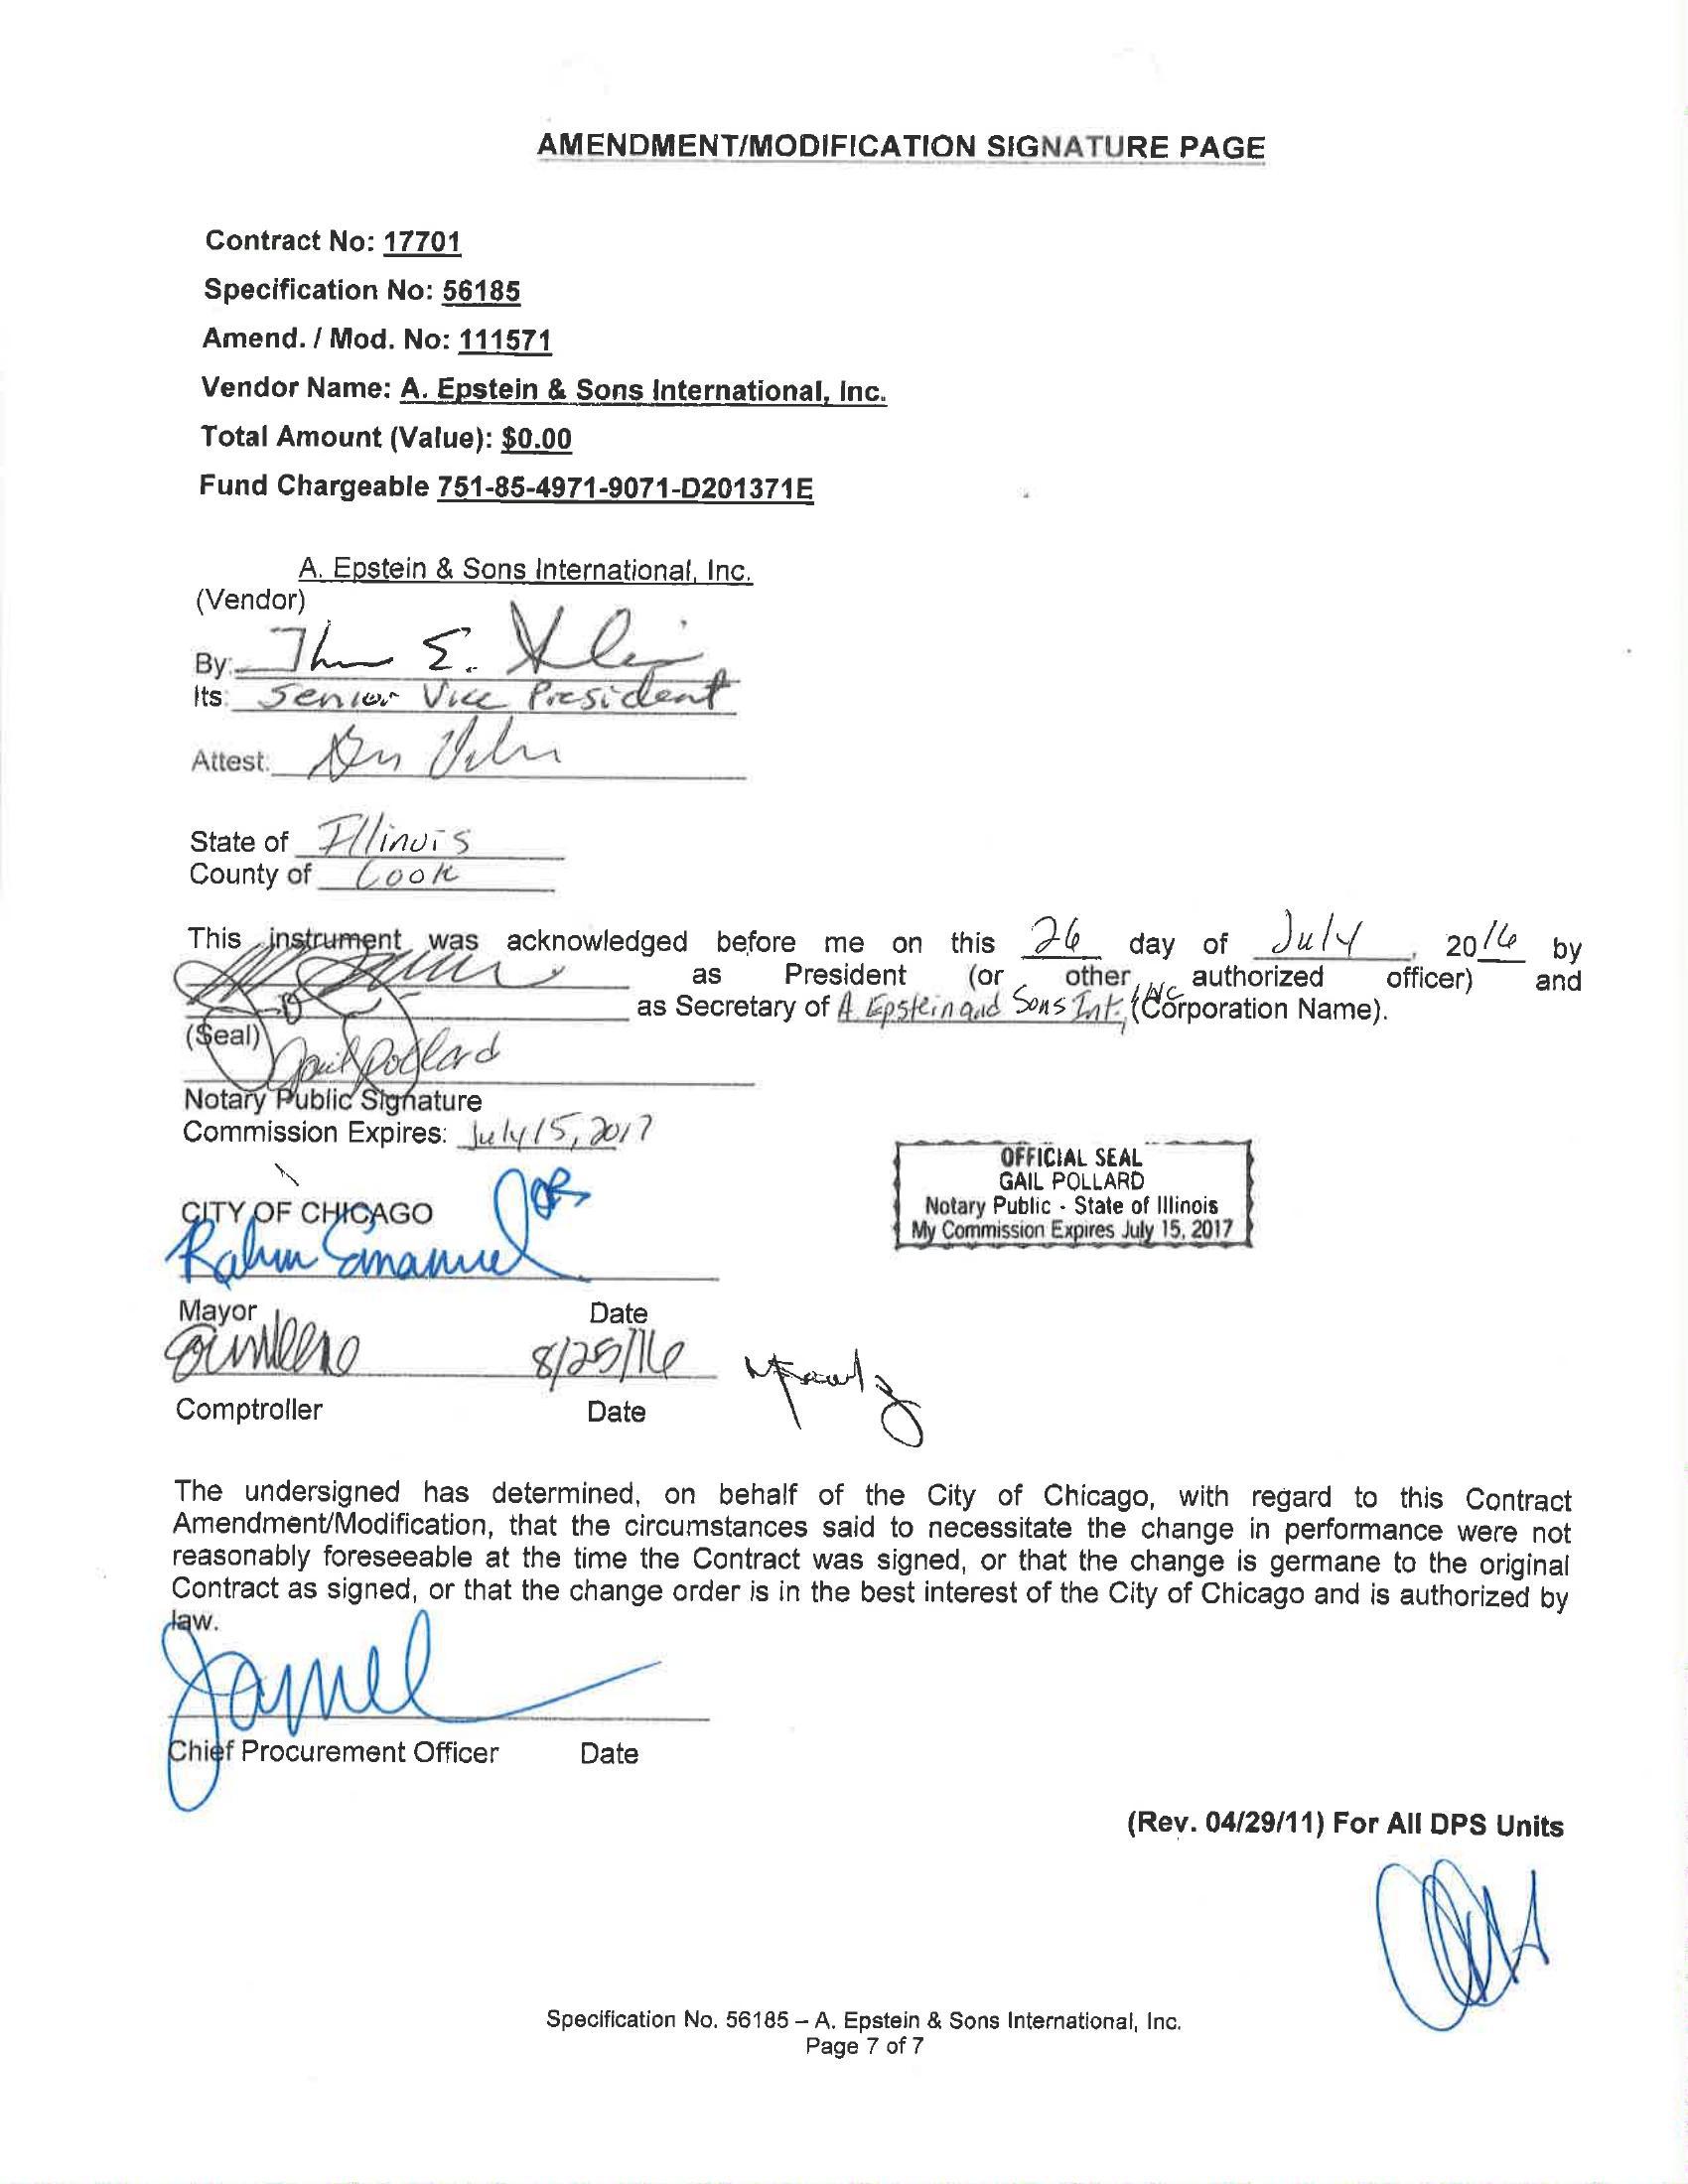 AMENDMENT/MODIFICATION SIGNATURE PAGE
Contract No: 17701
Specification No: 56185
Amend. / Mod. No: 111571
Vendor Name: A. Epstein & Sons International, Inc.
Total Amount (Value): $0.00
Fund Chargeable 751-85-4971-9071-D201371E
A. Epstein & Sons International, Inc.
(Vendor)
By:
Its: Senior Vice President
Attest:
State of Illinois
County of Cook
This instrument was acknowledged before me on this 26 day of July, 2016 by
as President (or other authorized officer) and
as Secretary of A. Epstein and Sons Int., Inc (Corporation Name).
(Seal)
Gail Pollard
Notary Public Signature
Commission Expires: July 15, 2017
OFFICIAL SEAL
GAIL POLLARD
Notary Public - State of Illinois
My Commission Expires July 15, 2017
CITY OF CHICAGO
Rahm Emanuel
Mayor Date
8/25/16
Comptroller Date
The undersigned has determined, on behalf of the City of Chicago, with regard to this Contract
Amendment/Modification, that the circumstances said to necessitate the change in performance were not
reasonably foreseeable at the time the Contract was signed, or that the change is germane to the original
Contract as signed, or that the change order is in the best interest of the City of Chicago and is authorized by
law.
Chief Procurement Officer Date
(Rev. 04/29/11) For All DPS Units
Specification No. 56185 – A. Epstein & Sons International, Inc.
Page 7 of 7